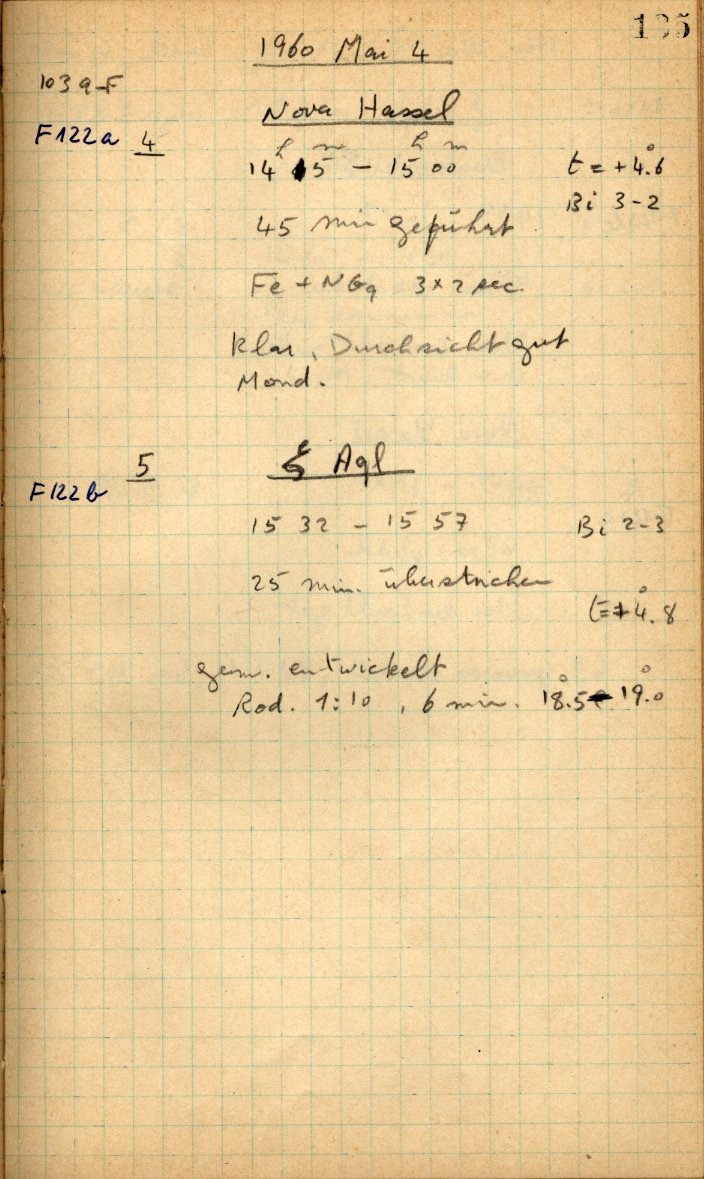 135
1960 Mai 4
103 a-F
Nova Hassel
F122a 4
14ʰ 15ᵐ – 15ʰ 00ᵐ t = +4.°6
Bi 3-2
45 min geführt
Fe + 3 × 2 sec
klar, Durchsicht gut
Mond.
5 Aql
F122b
15 32 – 15 57 Bi 2-3
25 min. überstrichen
t=+4.°8
gem. entwickelt
Rod. 1:10, 6 min. 18.°5 – 19.°0